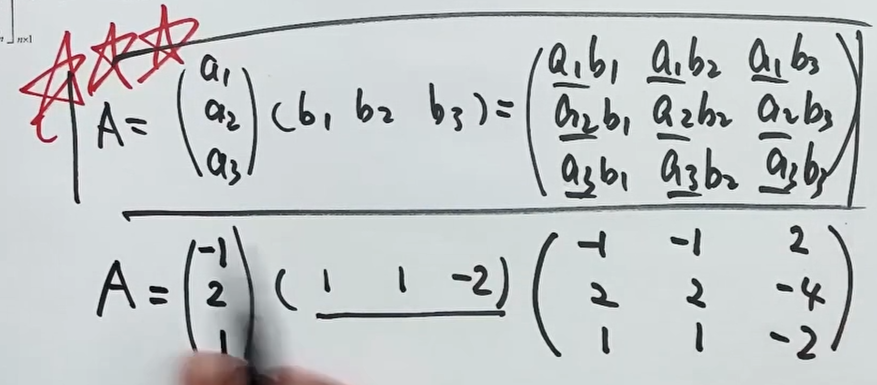 n×1
A = (a₁ a₂ a₃) (b₁ b₂ b₃) = (a₁b₁ a₁b₂ a₁b₃
a₂b₁ a₂b₂ a₂b₃
a₃b₁ a₃b₂ a₃b₃)
A = (-1 2 1) (1 1 -2) (-1 -1 2
2 2 -4
1 1 -2)